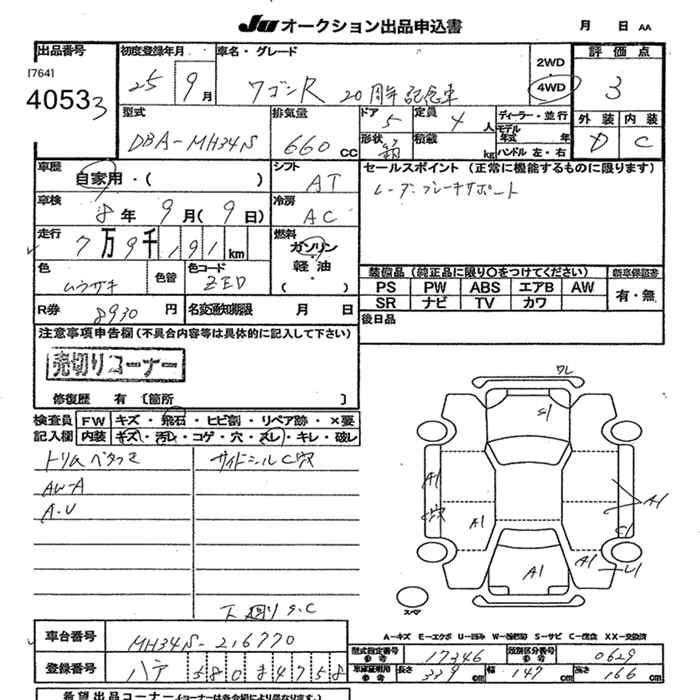 JU オークション出品申込書 月 日 AA
出品番号 初度登録年月 車名・グレード 2WD 評価点
[764] 25 9月 ワゴンR 20周年記念車 4WD 3
40533
型式 排気量 ドア 定員 ディーラー・並行 外装 内装
DBA-MH34S 660cc 5 4人 モデル年式 年 D C
形状 箱 積載 kg ハンドル 左・右
車歴 シフト セールスポイント (正常に機能するものに限ります)
自家用・( ) AT レーダーブレーキサポート
車検 冷房
8年 9月(9日) AC
走行 燃料
7万9千191km ガソリン・軽油・( )
色 色替 色コード 装備品 (純正品に限り○をつけてください) 新車保証書
ムラサキ ZED PS PW ABS エアB AW 有・無
SR ナビ TV カワ
R券 8930円 名変通知期限 月 日
後日品
注意事項申告欄 (不具合内容等は具体的に記入して下さい)
売切りコーナー
修復歴 有 [箇所 ]
検査員 FW キズ・飛石・ヒビ割・リペア跡・×要
記入欄 内装 キズ・汚レ・コゲ・穴・スレ・キレ・破レ
トリムベタつき サイドシルC穴
AW-A
A.U
下廻りサ.C
ワレ
A1
A1
C穴
A1
C1
A1
A1
スペア
A-キズ E-エクボ U-凹み W-補修跡 S-サビ C-腐食 XX-交換済
車台番号 MH34S-216770
型式指定番号 参考 17346 類別区分番号 参考 0629
登録番号 ハチ 580 ま 4758
車庫証明用 参考 長さ 339cm 幅 147cm 高さ 166cm
希望出品コーナー